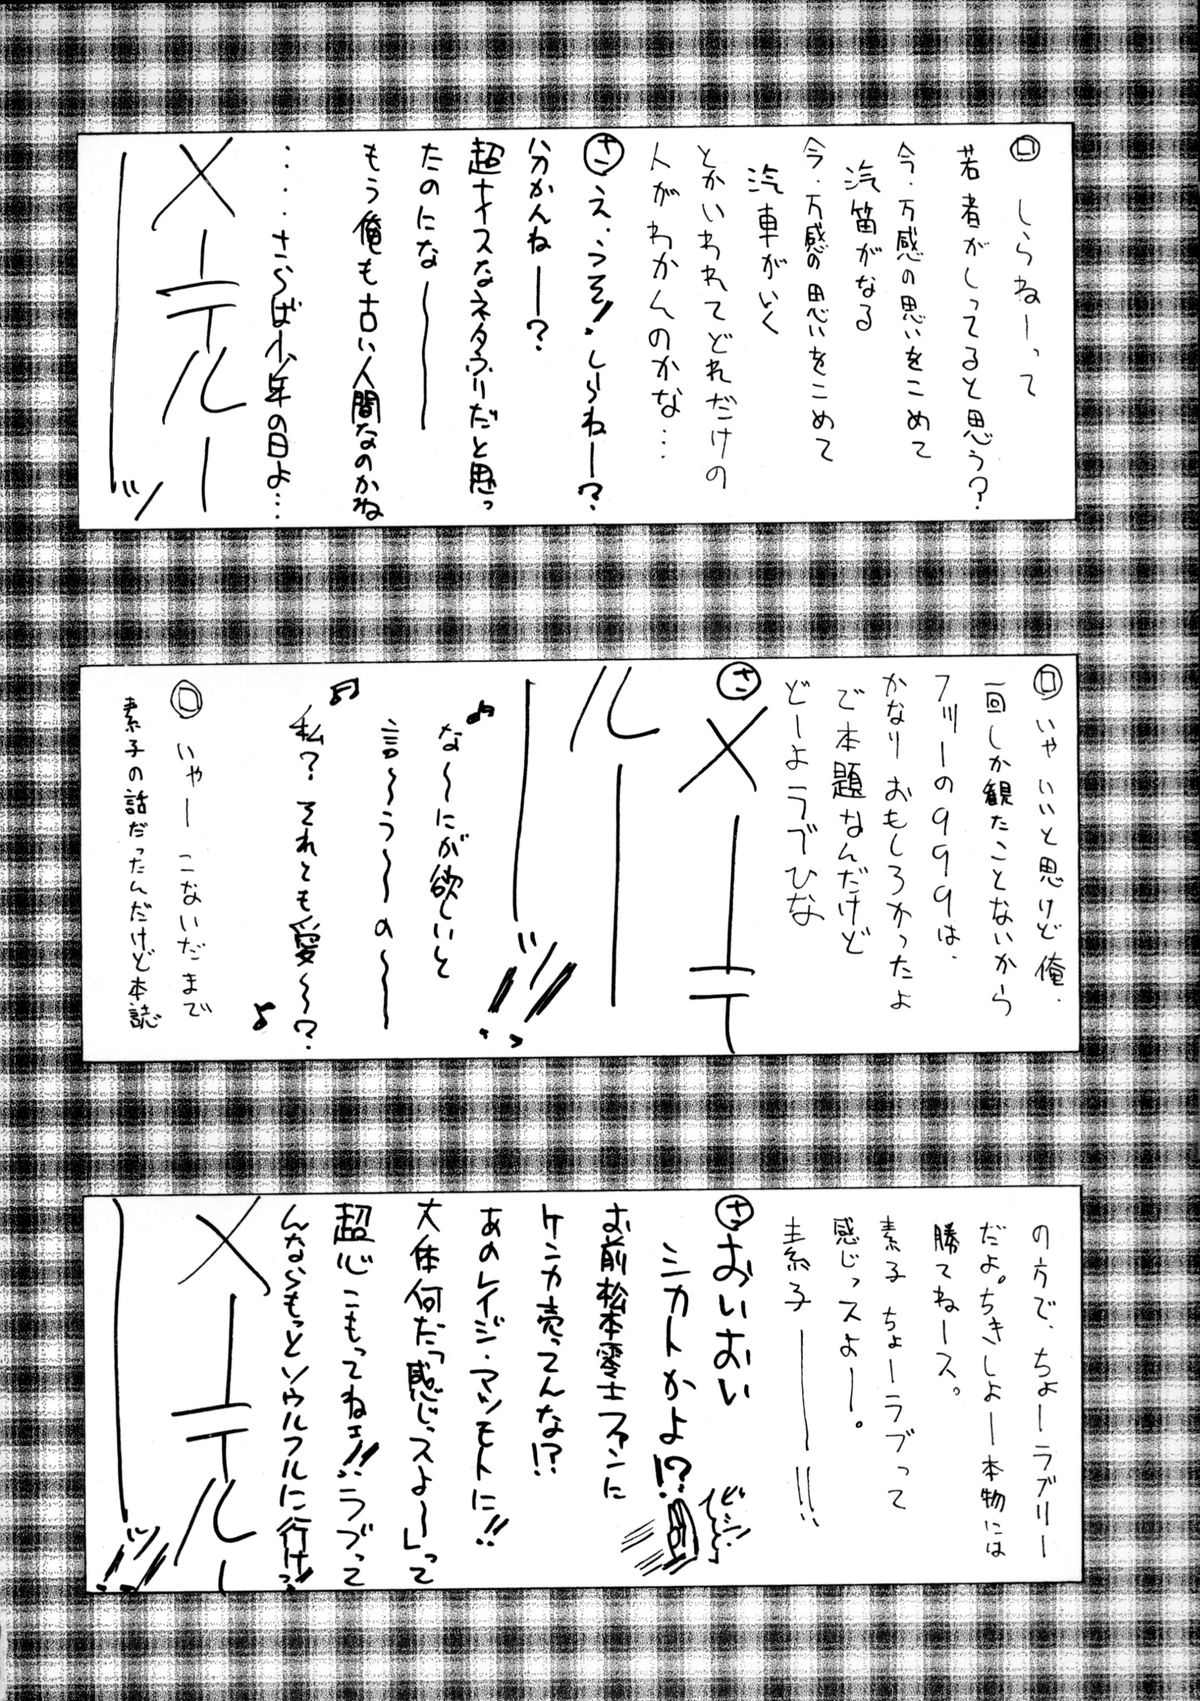 ロ しらねーって
若者がしってると思う?
今・万感の思いをこめて
汽笛がなる
今・万感の思いをこめて
汽車がいく
とかいわれてどれだけの
人がわかんのかな…
サ え、うそ!しらねー?
分かんねー?
超ナイスなネタふりだと思っ
たのにな〜
もう俺も古い人間なのかね
・・・さらば少年の日よ…
メーテルー
ッ
ロ いやいいと思けど俺、
一回しか観たことないから
フツーの999は、
かなりおもしろかったよ
で本題なんだけど
どーよラブひな
サ メーテ
ルー
ッ!!
な〜にが欲しいと
言〜う〜の〜
私? それとも愛〜?
ロ いやー こないだまで
素子の話だったんだけど本誌
の方で、ちょーラブリー
だよ。ちきしょー本物には
勝てねース。
素子ちょーラブって
感じっスよー。
素子ー!!
サ おいおい
シカトかよ!?
ビシィ
お前松本零士ファンに
ケンカ売ってんな!?
あのレイジ・マツモトに!!
大体何だ「感じっスよ〜」って
超心こもってねェ!!ラブって
んならもっとソウルフルに行けっ!
メーテルー
ッ!!